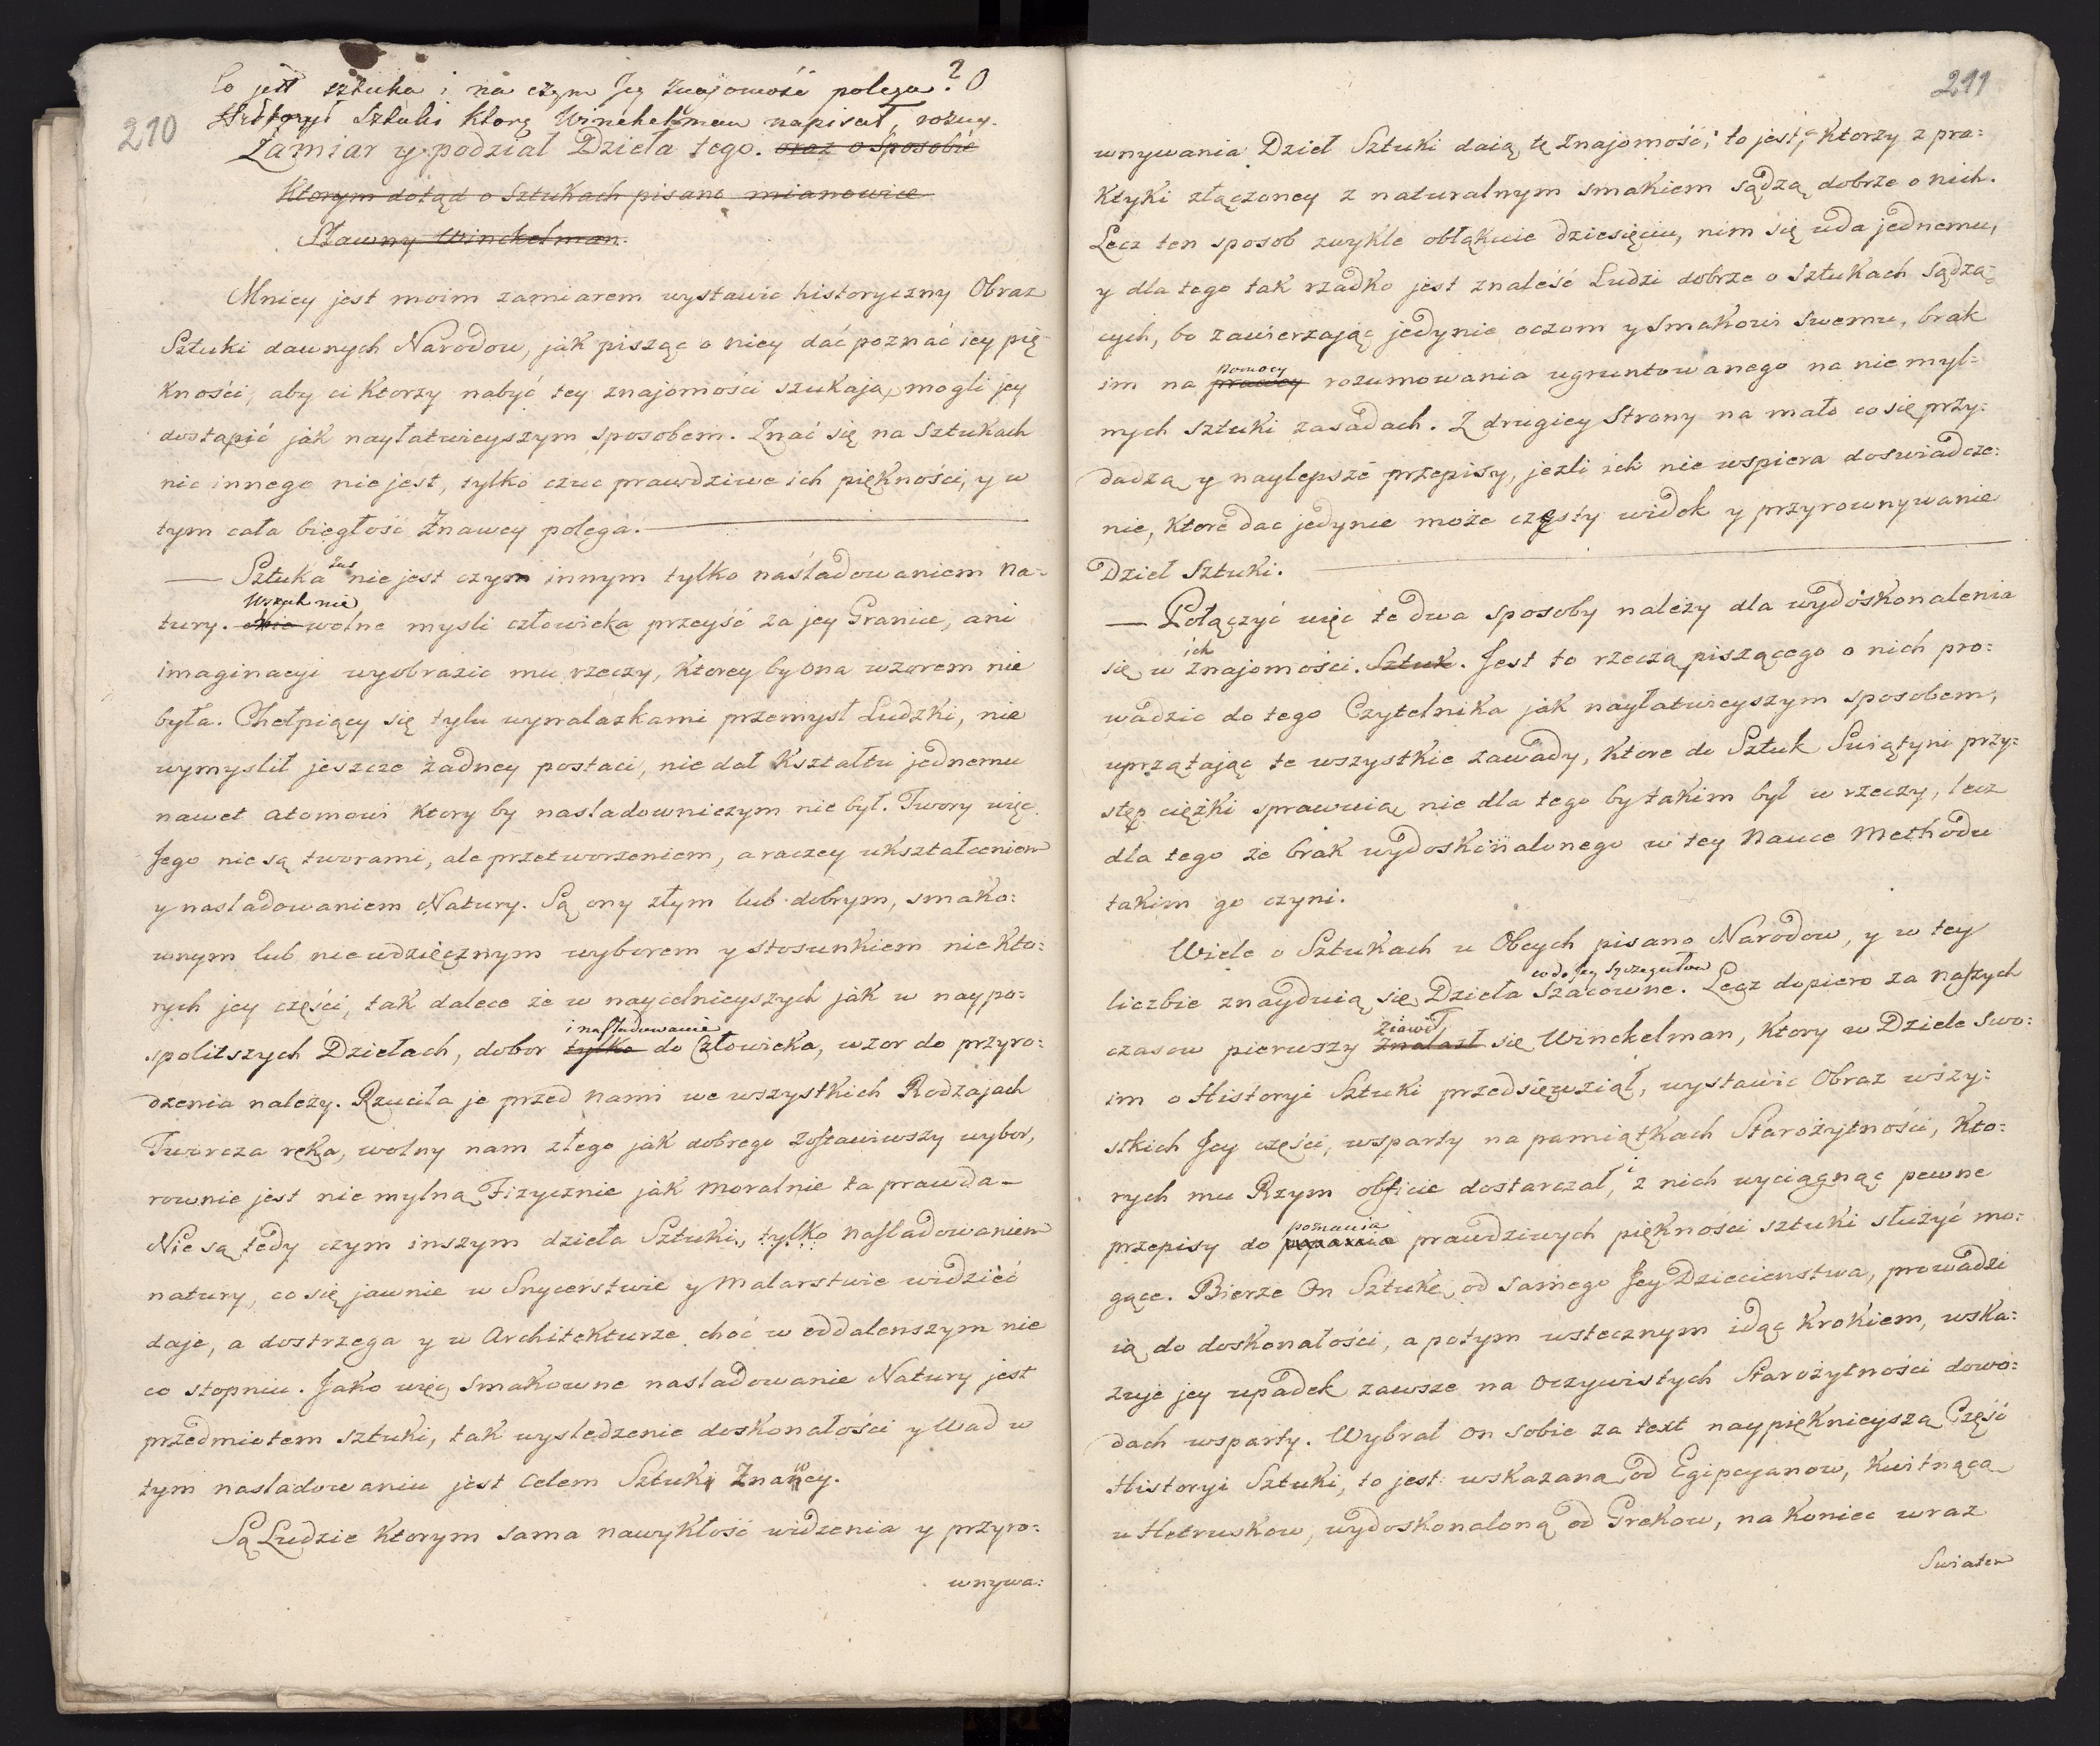 210
Co jest sztuka i na czym Jey znajomość polega? O
Historyi Sztuki ktorą Winckelman napisał,
Zamiar y podział Dzieła tego. oraz o Sposobie
Ktorym dotąd o Sztukach pisano mianowice
Sławny Winckelman.
Mniey jest moim zamiarem wystawic historyczny Obraz
Sztuki dawnych Narodow, jak pisząc o niey dać poznać iey pię-
kności, aby ci Ktorzy nabyć tey znajomości szukają, mogli jey
dostąpić jak nayłatwieyszym sposobem. Znać się na Sztukach
nic innego nie jest, tylko czuc prawdziwe ich piękności, y w
tym cała biegłość Znawcy polega.
— Sztuka zas nie jest czym innym tylko nasladowaniem na-
Wszak nie
tury. Nie wolne mysli człowieka przeyść za jey Granice, ani
imaginacyi wyobrazic mu rzeczy, Ktorey by ona wzorem nie
była. Chełpiący się tylu wynalazkami przemysł Ludzki, nie
wymyslił jeszcze żadney postaci, nie dał Kształtu jednemu
nawet atomowi Ktory by nasladowniczym nie był. Twory więc
Jego nie są tworami, ale przetworzeniem, a raczey ukształceniem
y nasladowaniem Natury. Są ony złym lub dobrym, smako:
wnym lub niewdzięcznym wyborem y stosunkiem nie Kto:
rych jey części, tak dalece że w naycelnieyszych jak w naypo:
i nasladowanie
spolitszych Dziełach, dobor tylko do Człowieka, wzor do przyro:
dzenia należy. Rzuciła je przed nami we wszystkich Rodzajach
Tworcza ręka, wolny nam złego jak dobrego zostawiwszy wybor,
rownie jest nie mylną Fizycznie jak moralnie ta prawda –
Nie są tedy czym inszym dzieła Sztuki, tylko nasladowaniem
natury, co się jawnie w Snycerstwie y malarstwie widzieć
daje, a dostrzega y w Architekturze choć w oddalenszym nie
co stopniu. Jako więc smakowne nasladowanie Natury jest
przedmiotem sztuki, tak wysledzenie doskonałości y Wad w
tym nasladowaniu jest celem Sztuki Znawcy.
Są Ludzie Ktorym sama nawykłość widzenia y przyro:
wnywa:
211
wnywania Dzieł Sztuki daią tę znajomość; to jest, Ktorzy z pra:
ktyki złączoney z naturalnym smakiem sądzą dobrze o nich.
Lecz ten sposob zwykle obłąkuie dziesięciu, nim się uda jednemu,
y dla tego tak rzadko jest znaleść Ludzi dobrze o Sztukach sądzą-
cych, bo zawierzając jedynie oczom y smakowi swemu, brak
pomocy
im na prawey rozumowania ugruntowanego na nie myl:
nych sztuki zasadach. Z drugiey Strony na mało co się przy:
dadzą y naylepsze przepisy, jezli ich nie wspiera doswiadcze:
nie, Ktore dac jedynie może częsty widok y przyrownywanie
Dzieł Sztuki.
— Połączyć więc te dwa sposoby należy dla wydoskonalenia
ich
się w znajomości. Sztuk. Jest to rzeczą piszącego o nich pro:
wadzic do tego Czytelnika jak nayłatwieyszym sposobem,
uprzątając te wszystkie zawady, Ktore do Sztuk Swiątyni przy:
stęp ciężki sprawuią nie dla tego by takim był w rzeczy, lecz
dla tego że brak wydoskonalonego w tey Nauce Methodu
takim go czyni.
Wiele o Sztukach u Obcych pisano Narodow, y w tey
co do Jey szczegułow
liczbie znayduią się Dzieła szacowne. Lecz dopiero za naszych
ziawił
czasow pierwszy znalazł się Winckelman, Ktory w Dziele Swo:
im o Historyi Sztuki przedsięwziął, wystawic Obraz wszy:
stkich Jey części, wsparty na pamiątkach Starożytności, Kto:
rych mu Rzym obficie dostarczał, i z nich wyciągnąć pewne
poznania
przepisy do prawdziwych piękności sztuki służyć mo:
gące. Bierze On Sztukę od samego Jey Dziecienstwa, prowadzi
ią do doskonałości, a potym wstecznym idąc Krokiem, wska:
zuje jey upadek zawsze na Oczywistych Starożytności dowo:
dach wsparty. Wybrał on sobie za text naypięknieyszą Część
Historyi Sztuki, to jest wskazaną od Egipcyanow, Kwitnącą
u Hetruskow, wydoskonaloną od Grekow, na Koniec wraz
Swiatem